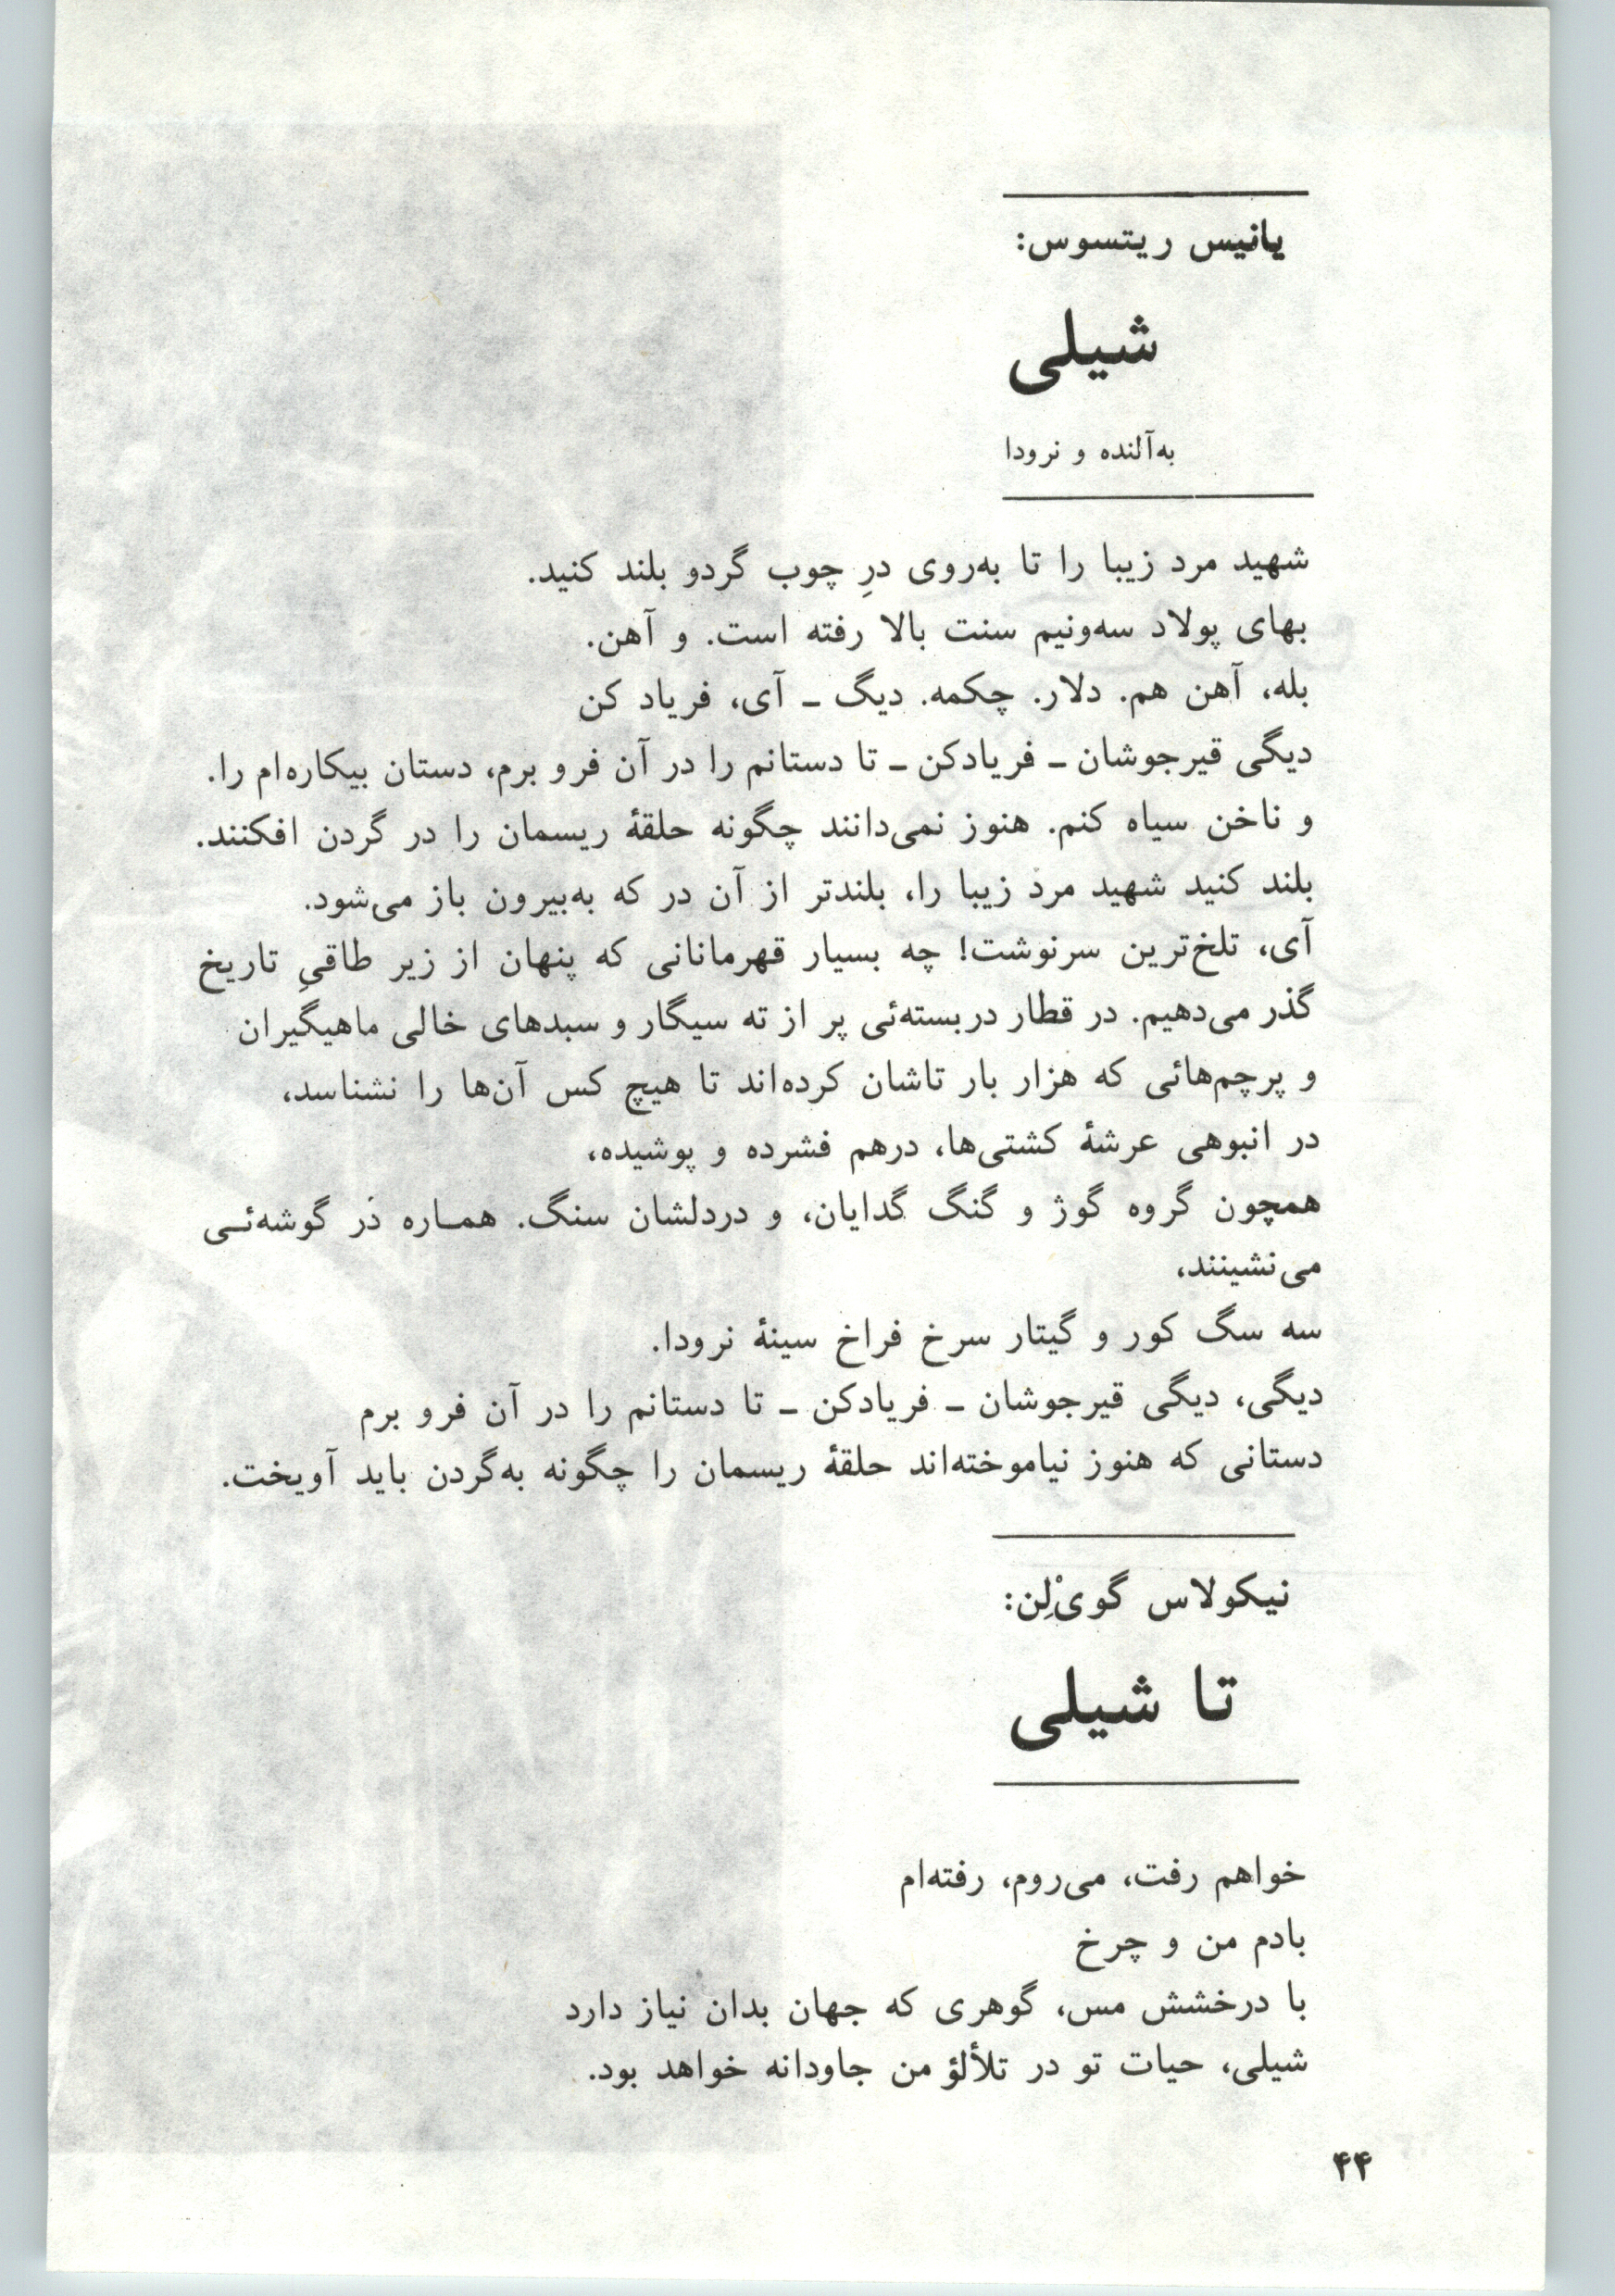 یانیس ریتسوس:
شیلی
به‌آلنده و نرودا
شهید مرد زیبا را تا به‌روی درِ چوب گردو بلند کنید.
بهای پولاد سه‌ونیم سنت بالا رفته است. و آهن.
بله، آهن هم. دلار. چکمه. دیگ ـ آی، فریاد کن
دیگی قیرجوشان ـ فریادکن ـ تا دستانم را در آن فرو برم، دستان بیکاره‌ام را.
و ناخن سیاه کنم. هنوز نمی‌دانند چگونه حلقهٔ ریسمان را در گردن افکنند.
بلند کنید شهید مرد زیبا را، بلندتر از آن در که به‌بیرون باز می‌شود.
آی، تلخ‌ترین سرنوشت! چه بسیار قهرمانانی که پنهان از زیر طاقیِ تاریخ
گذر می‌دهیم. در قطار دربسته‌ئی پر از ته سیگار و سبدهای خالی ماهیگیران
و پرچم‌هائی که هزار بار تاشان کرده‌اند تا هیچ کس آن‌ها را نشناسد،
در انبوهی عرشهٔ کشتی‌ها، درهم فشرده و پوشیده،
همچون گروه گوژ و گنگ گدایان، و دردلشان سنگ. همـاره در گوشه‌ئـی
می‌نشینند،
سه سگ کور و گیتار سرخ فراخ سینهٔ نرودا.
دیگی، دیگی قیرجوشان ـ فریادکن ـ تا دستانم را در آن فرو برم
دستانی که هنوز نیاموخته‌اند حلقهٔ ریسمان را چگونه به‌گردن باید آویخت.
نیکولاس گویْ‌لِن:
تا شیلی
خواهم رفت، می‌روم، رفته‌ام
بادم من و چرخ
با درخشش مس، گوهری که جهان بدان نیاز دارد
شیلی، حیات تو در تلألؤ من جاودانه خواهد بود.
۴۴